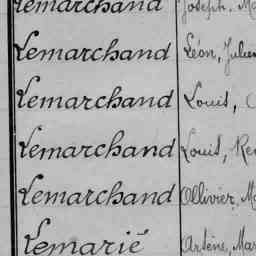 Lemarchand Joseph, Ma
Lemarchand Léon, Julien
Lemarchand Louis,
Lemarchand Louis, Ren
Lemarchand Ollivier, Ma
Lemarié Arsène, Mar